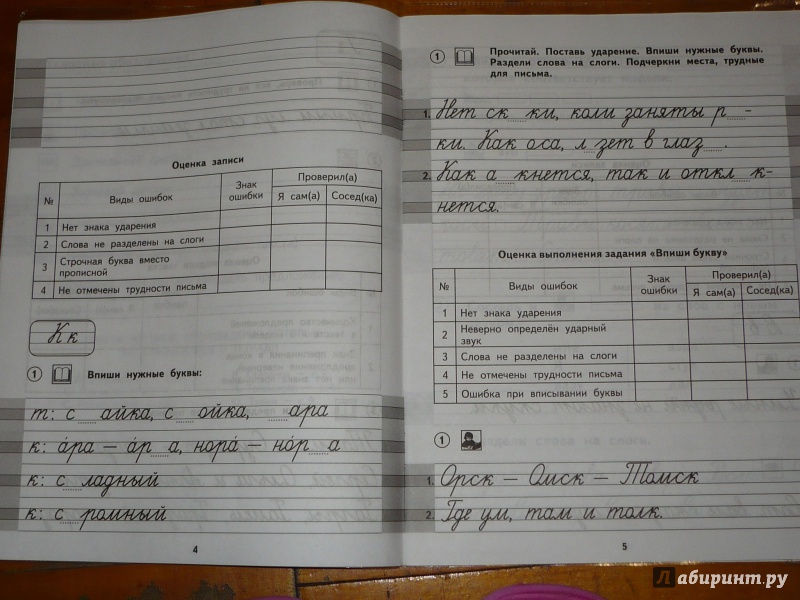 Оценка записи
№ Виды ошибок Знак ошибки Проверил(а)
Я сам(а) Сосед(ка)
1 Нет знака ударения
2 Слова не разделены на слоги
3 Строчная буква вместо прописной
4 Не отмечены трудности письма
К к
1 Впиши нужные буквы:
т: с__айка, с__ойка, __ара
к: а́ра — а́р__а, нора́ — но́р__а
к: с__ладный
к: с__ромный
4
1 Прочитай. Поставь ударение. Впиши нужные буквы.
Раздели слова на слоги. Подчеркни места, трудные
для письма.
1. Нет ск__ки, коли заняты р__-
ки. Как оса, л__зет в глаз__.
2. Как а__кнется, так и откл__к-
нется.
Оценка выполнения задания «Впиши букву»
№ Виды ошибок Знак ошибки Проверил(а)
Я сам(а) Сосед(ка)
1 Нет знака ударения
2 Неверно определён ударный звук
3 Слова не разделены на слоги
4 Не отмечены трудности письма
5 Ошибка при вписывании буквы
1
1. Орск — Омск — Томск
2. Где ум, там и толк.
5
Лабиринт.ру